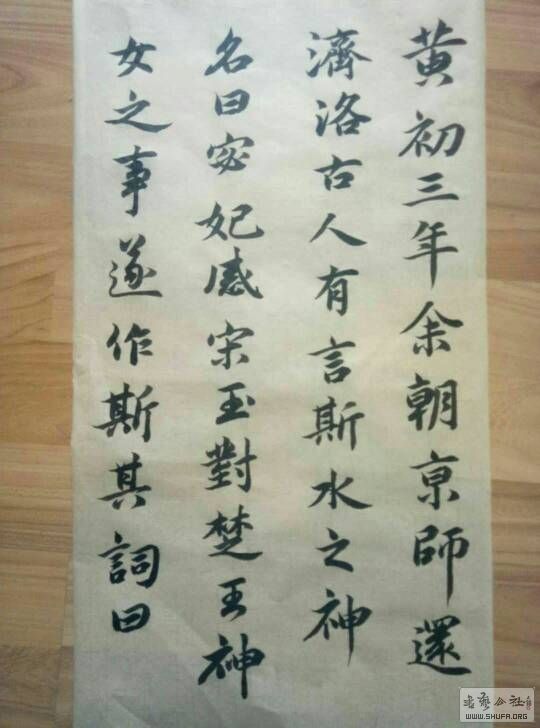 黄初三年余朝京師還
濟洛古人有言斯水之神
名曰宓妃感宋玉對楚王神
女之事遂作斯其詞曰
书艺公社
WWW.SHUFA.ORG